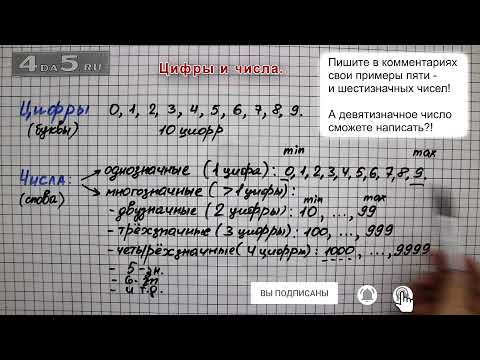 4DA5.RU
Цифры и числа.
Пишите в комментариях
свои примеры пяти -
и шестизначных чисел!
А девятизначное число
сможете написать?!
Цифры 0, 1, 2, 3, 4, 5, 6, 7, 8, 9.
(буквы) 10 цифр
min max
Числа: однозначные (1 цифра): 0, 1, 2, 3, 4, 5, 6, 7, 8, 9.
(слова) многозначные (>1 цифры):
min max
- двузначные (2 цифры): 10, ..., 99
- трёхзначные (3 цифры): 100, ..., 999
- четырёхзначные (4 цифры): 1000, ..., 9999
- 5-зн.
- 6-зн.
- и т.д.
ВЫ ПОДПИСАНЫ